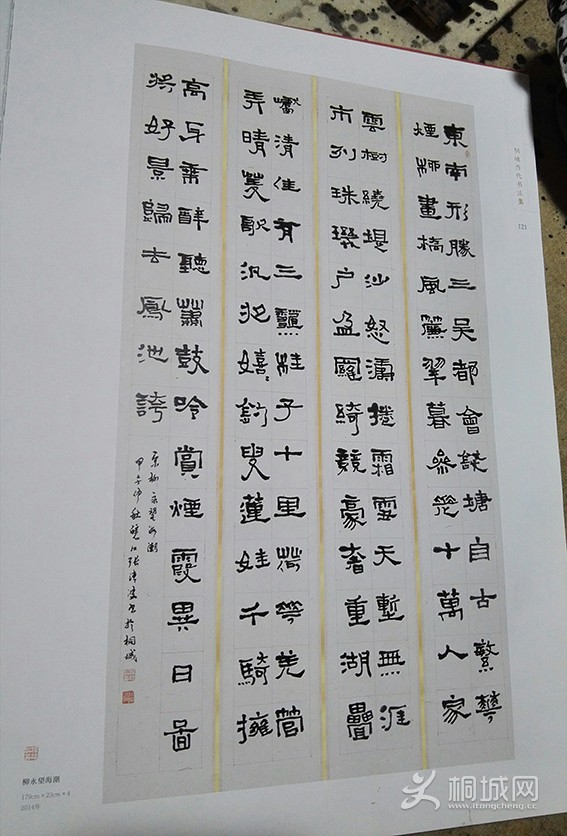 東南形勝三吳都會錢塘自古繁華
煙柳畫橋風簾翠暮參差十萬人家
雲樹繞堤沙怒濤捲霜雪天塹無涯
市列珠璣戶盈羅綺競豪奢重湖疊
巘清佳有三秋桂子十里荷花羌管
弄晴菱歌泛夜嬉嬉釣叟蓮娃千騎擁
高牙乘醉聽簫鼓吟賞煙霞異日圖
將好景歸去鳳池誇
宋柳永望海潮
甲午仲秋曉江張書於桐城
桐城当代书法集
121
柳永望海潮
179cm×23cm×4
2014年
桐城网
www.itongcheng.cc